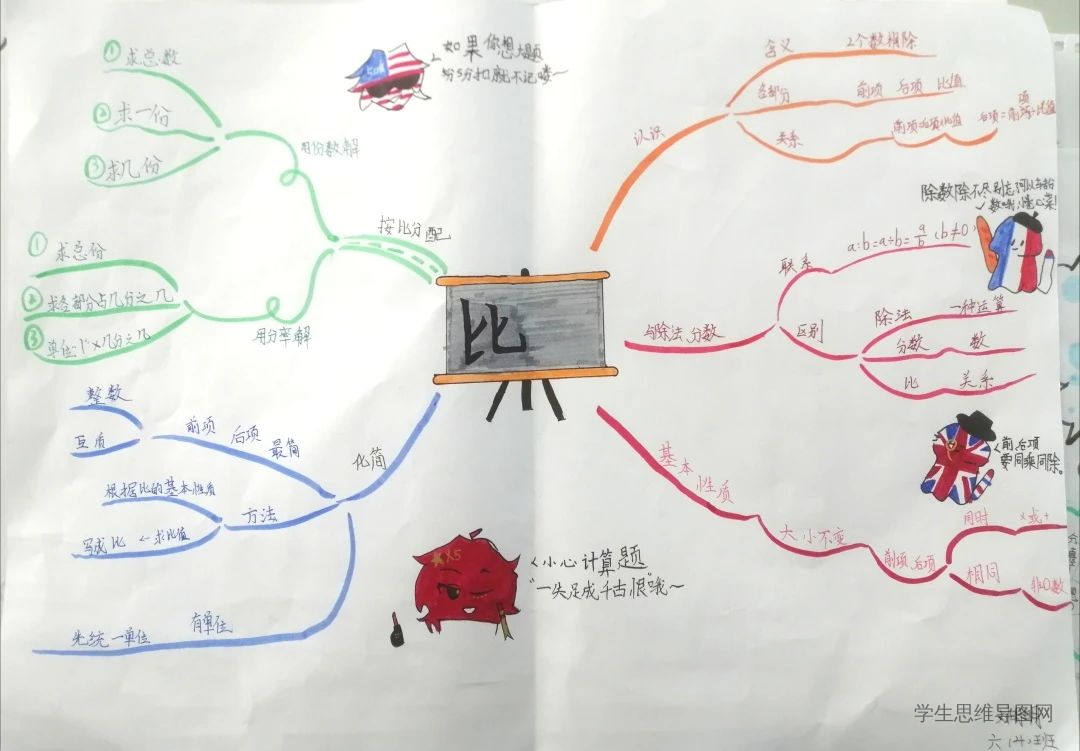 比
认识
含义
2个数相除
各部分
前项 后项 比值
关系
前项=后项×比值
后项=前项÷比值
除数除不尽别忘
与除法、分数
联系
a:b=a÷b=a/b (b≠0)
区别
除法 一种运算
分数 数
比 关系
前、后项
要同乘同除。
基本性质
大小不变
前项、后项
同时
×或÷
相同
非0数
按比分配
用份数解
① 求总数
② 求一份
③ 求几份
用分率解
① 求总份
② 求各部分占几分之几
③ 单位"1"×几分之几
如果你想大题
扣5分
就不记喽~
化简
前项 后项 最简
整数
互质
方法
根据比的基本性质
写成比 ←求比值
有单位
先统一单位
小心计算题
"一失足成千古恨"哦~
学生思维导图网
六(4)班